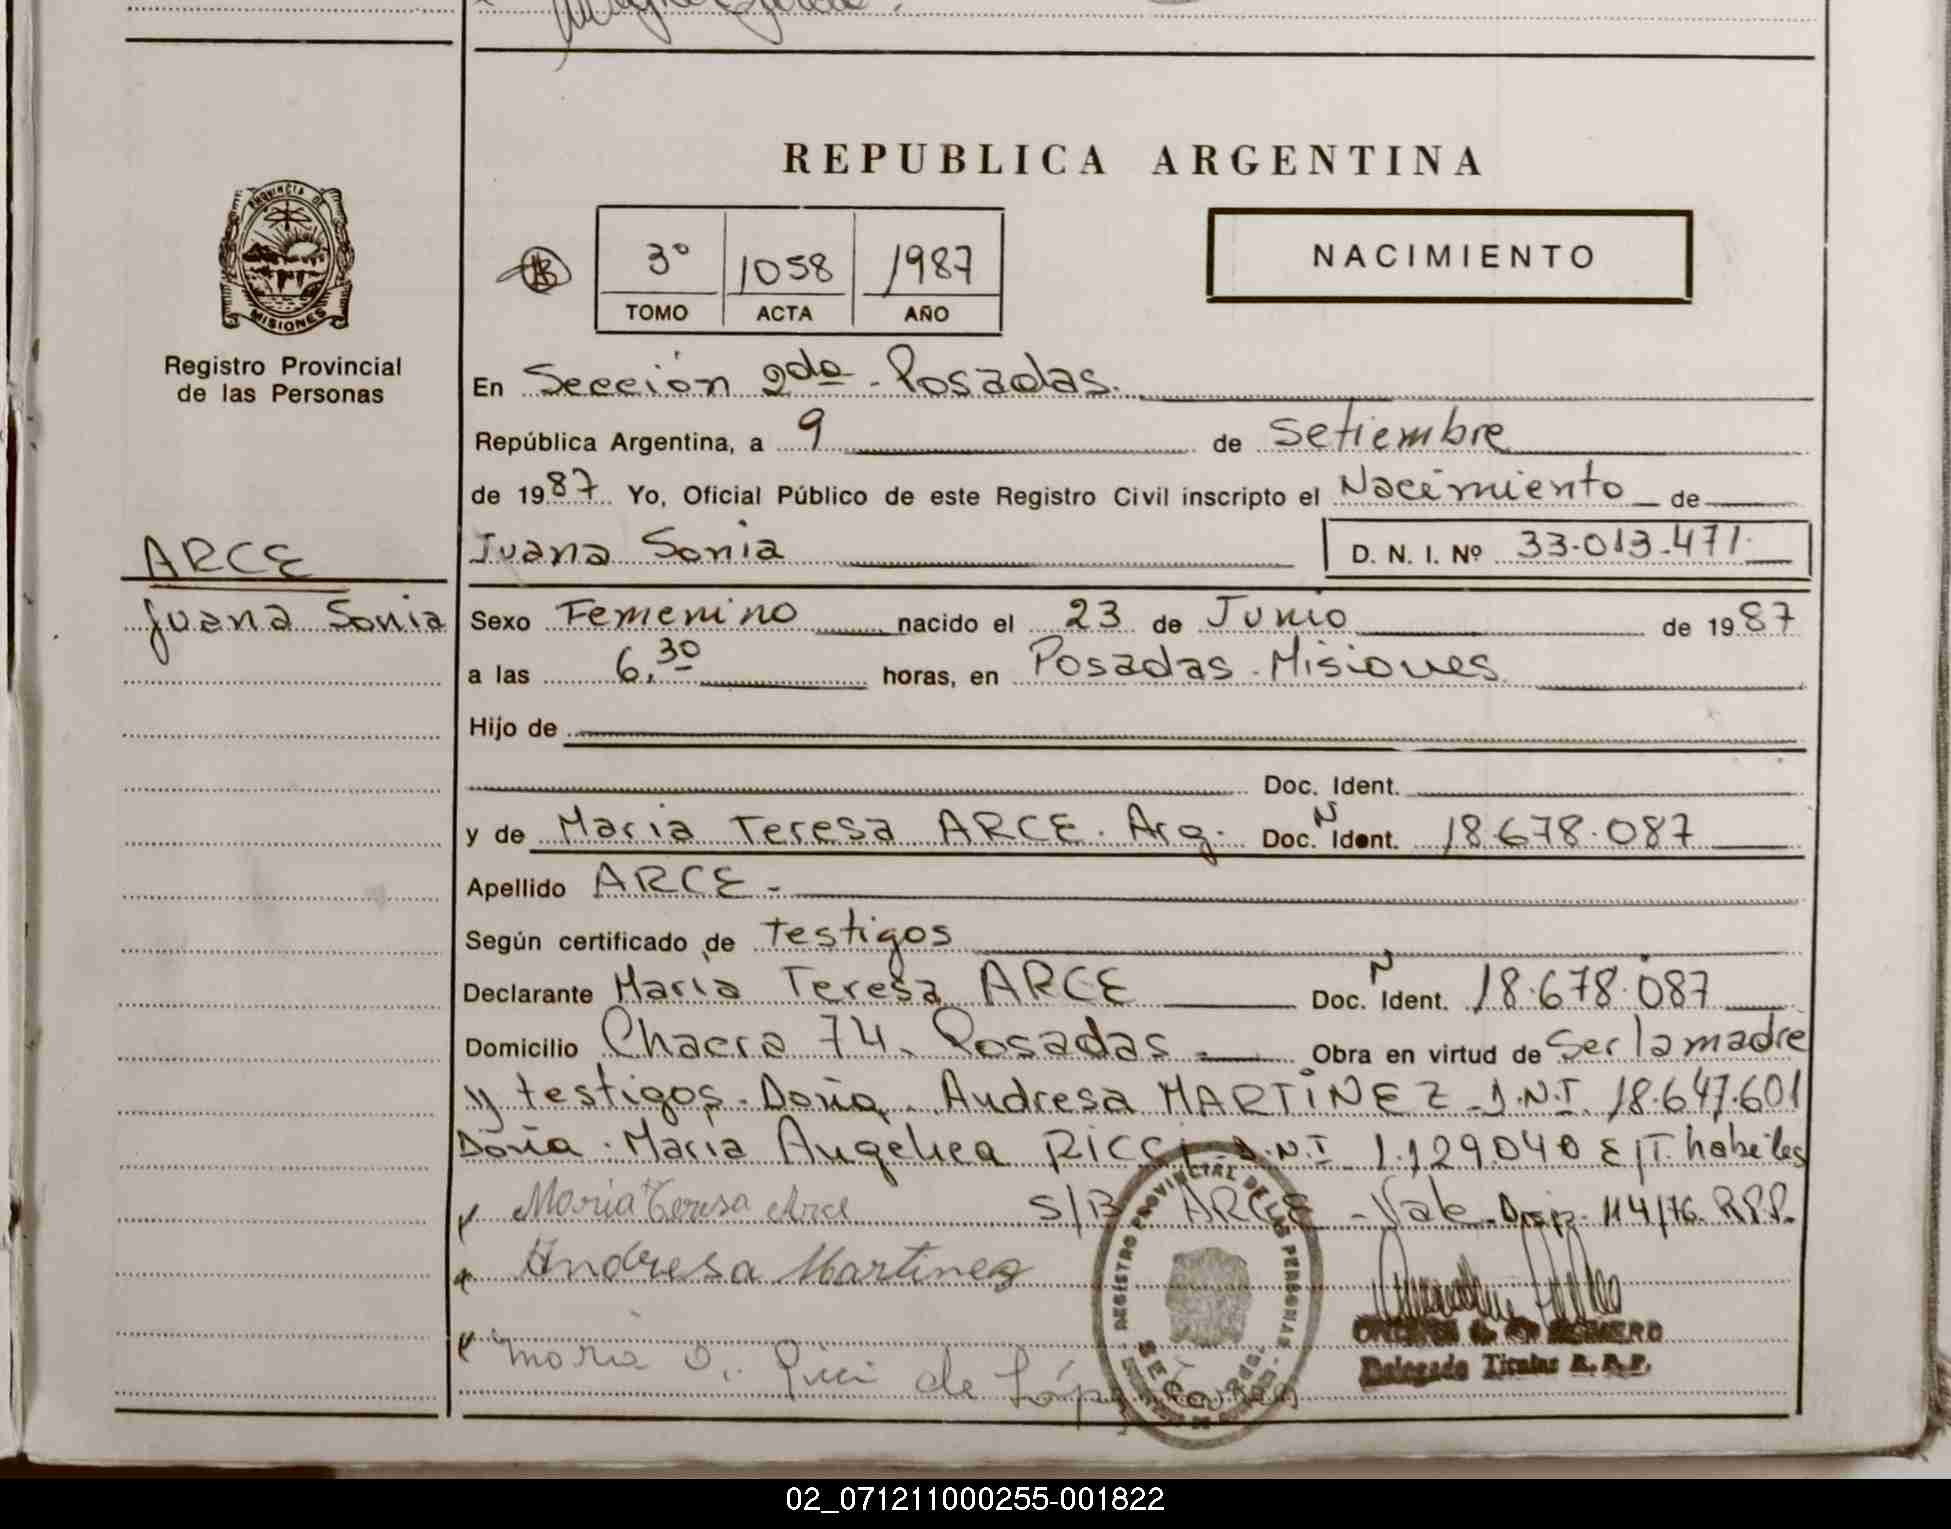 REPUBLICA ARGENTINA
PROVINCIA DE MISIONES
Registro Provincial
de las Personas
3° 1058 1987
TOMO ACTA AÑO
NACIMIENTO
En Sección 2da - Posadas.
República Argentina, a 9 de Setiembre
de 1987 Yo, Oficial Público de este Registro Civil inscripto el Nacimiento de
ARCE
Juana Sonia
Juana Sonia D. N. I. Nº 33.013.471.
Sexo Femenino nacido el 23 de Junio de 1987
a las 6,30 horas, en Posadas - Misiones
Hijo de
Doc. Ident.
y de Maria Teresa ARCE. Arg. Doc. N Ident. 18.678.087
Apellido ARCE -
Según certificado de testigos
Declarante Maria Teresa ARCE Doc. N Ident. 18.678.087
Domicilio Chacra 74. Posadas. Obra en virtud de Ser la madre
y testigos. Doña. Andresa MARTINEZ D.N.I. 18.647.601
Doña. Maria Angelica RICCI D.N.I 1.129.040 E/T. habiles
Maria Teresa Arce S/B ARCE - Vale. Disp. 114/76. R.P.P.
Andresa Martinez
Maria A. Ricci de López
REGISTRO PROVINCIAL DE LAS PERSONAS
Delegado Titular R. P. P.
02_071211000255-001822